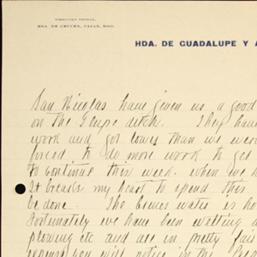 HDA. DE GUADALUPE Y A
San Nicolas have given us a good
on the Gupe ditch. They have
work and got lower than we were
forced to do more work to get
to continue this week. when we h
It breaks my heart to spend this
be done. The Cunes water is ho
Fortunately we have been wetting a
plowing etc and are in pretty fair
you will notice in the